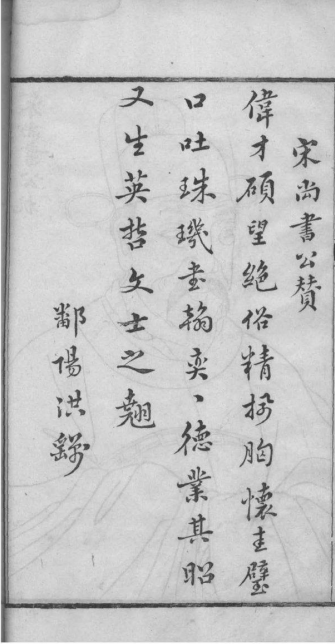 宋尚書公贊
偉才碩望絕俗精 胸懷圭璧
口吐珠璣 翰奕丶德業其昭
又生英哲文士之翹
鄱陽洪